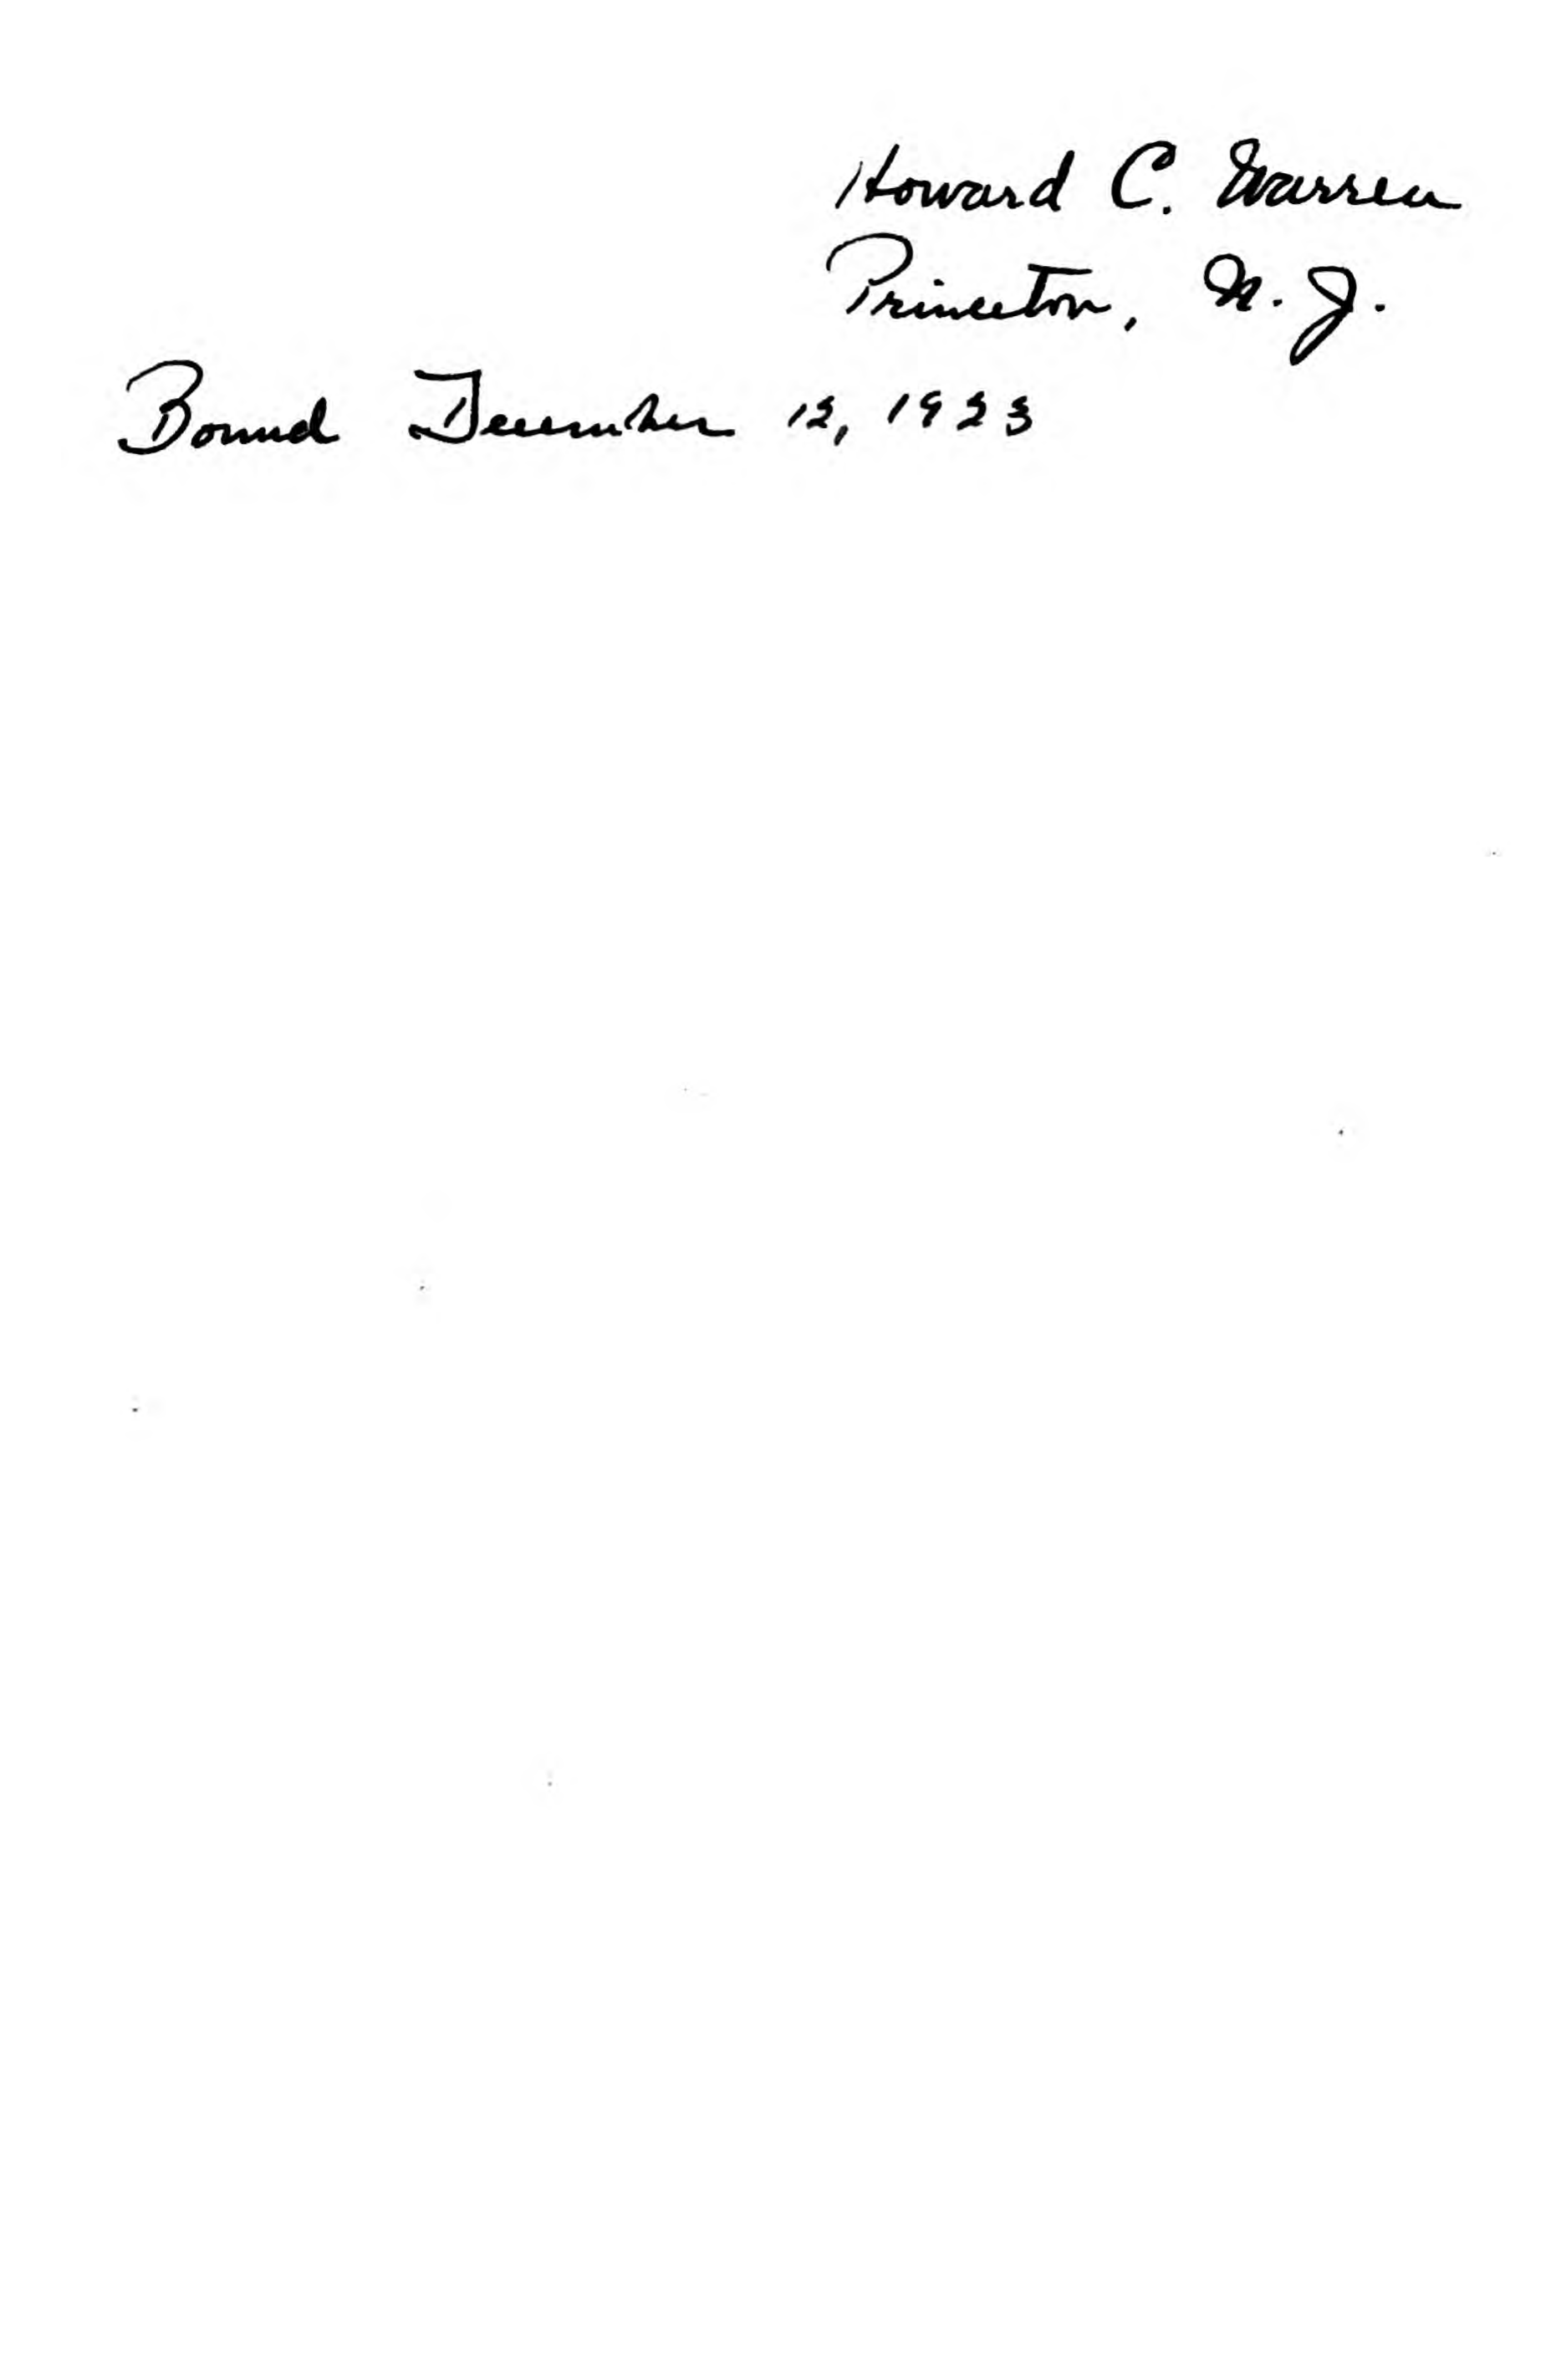 Howard C. Warren
Princeton, N. J.
Bound December 12, 1923